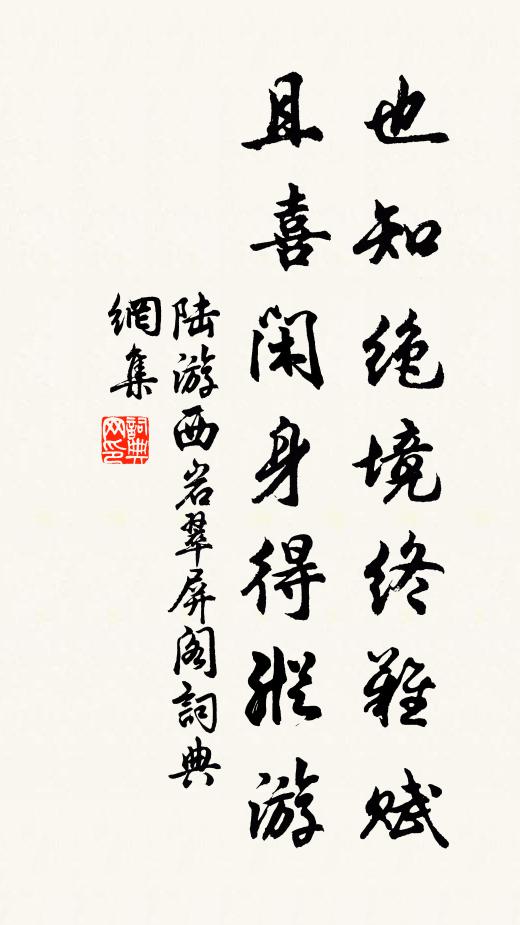 也知绝境终难赋
且喜闲身得縱游
陆游西岩翠屏阁詞典
網集
詞典
网印